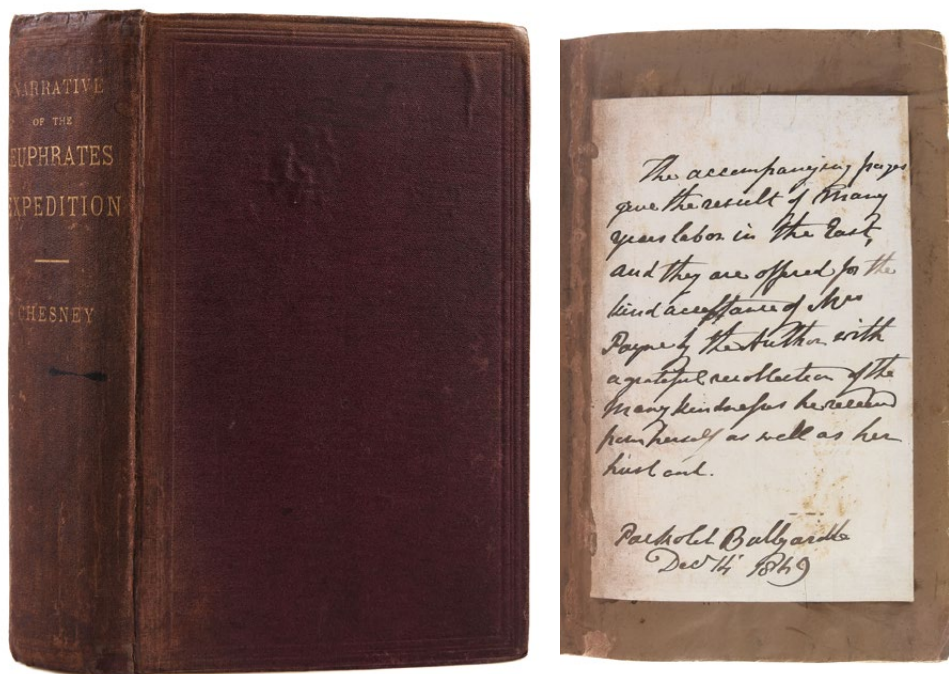 NARRATIVE
OF THE
EUPHRATES
EXPEDITION
CHESNEY
The accompanying pages
give the result of many
years labor in the East,
and they are offered for the
kind acceptance of Mrs
Payne by the Author with
a grateful recollection of the
many kindnesses he received
from herself as well as her
husband.
Ballyardle
Dec 14